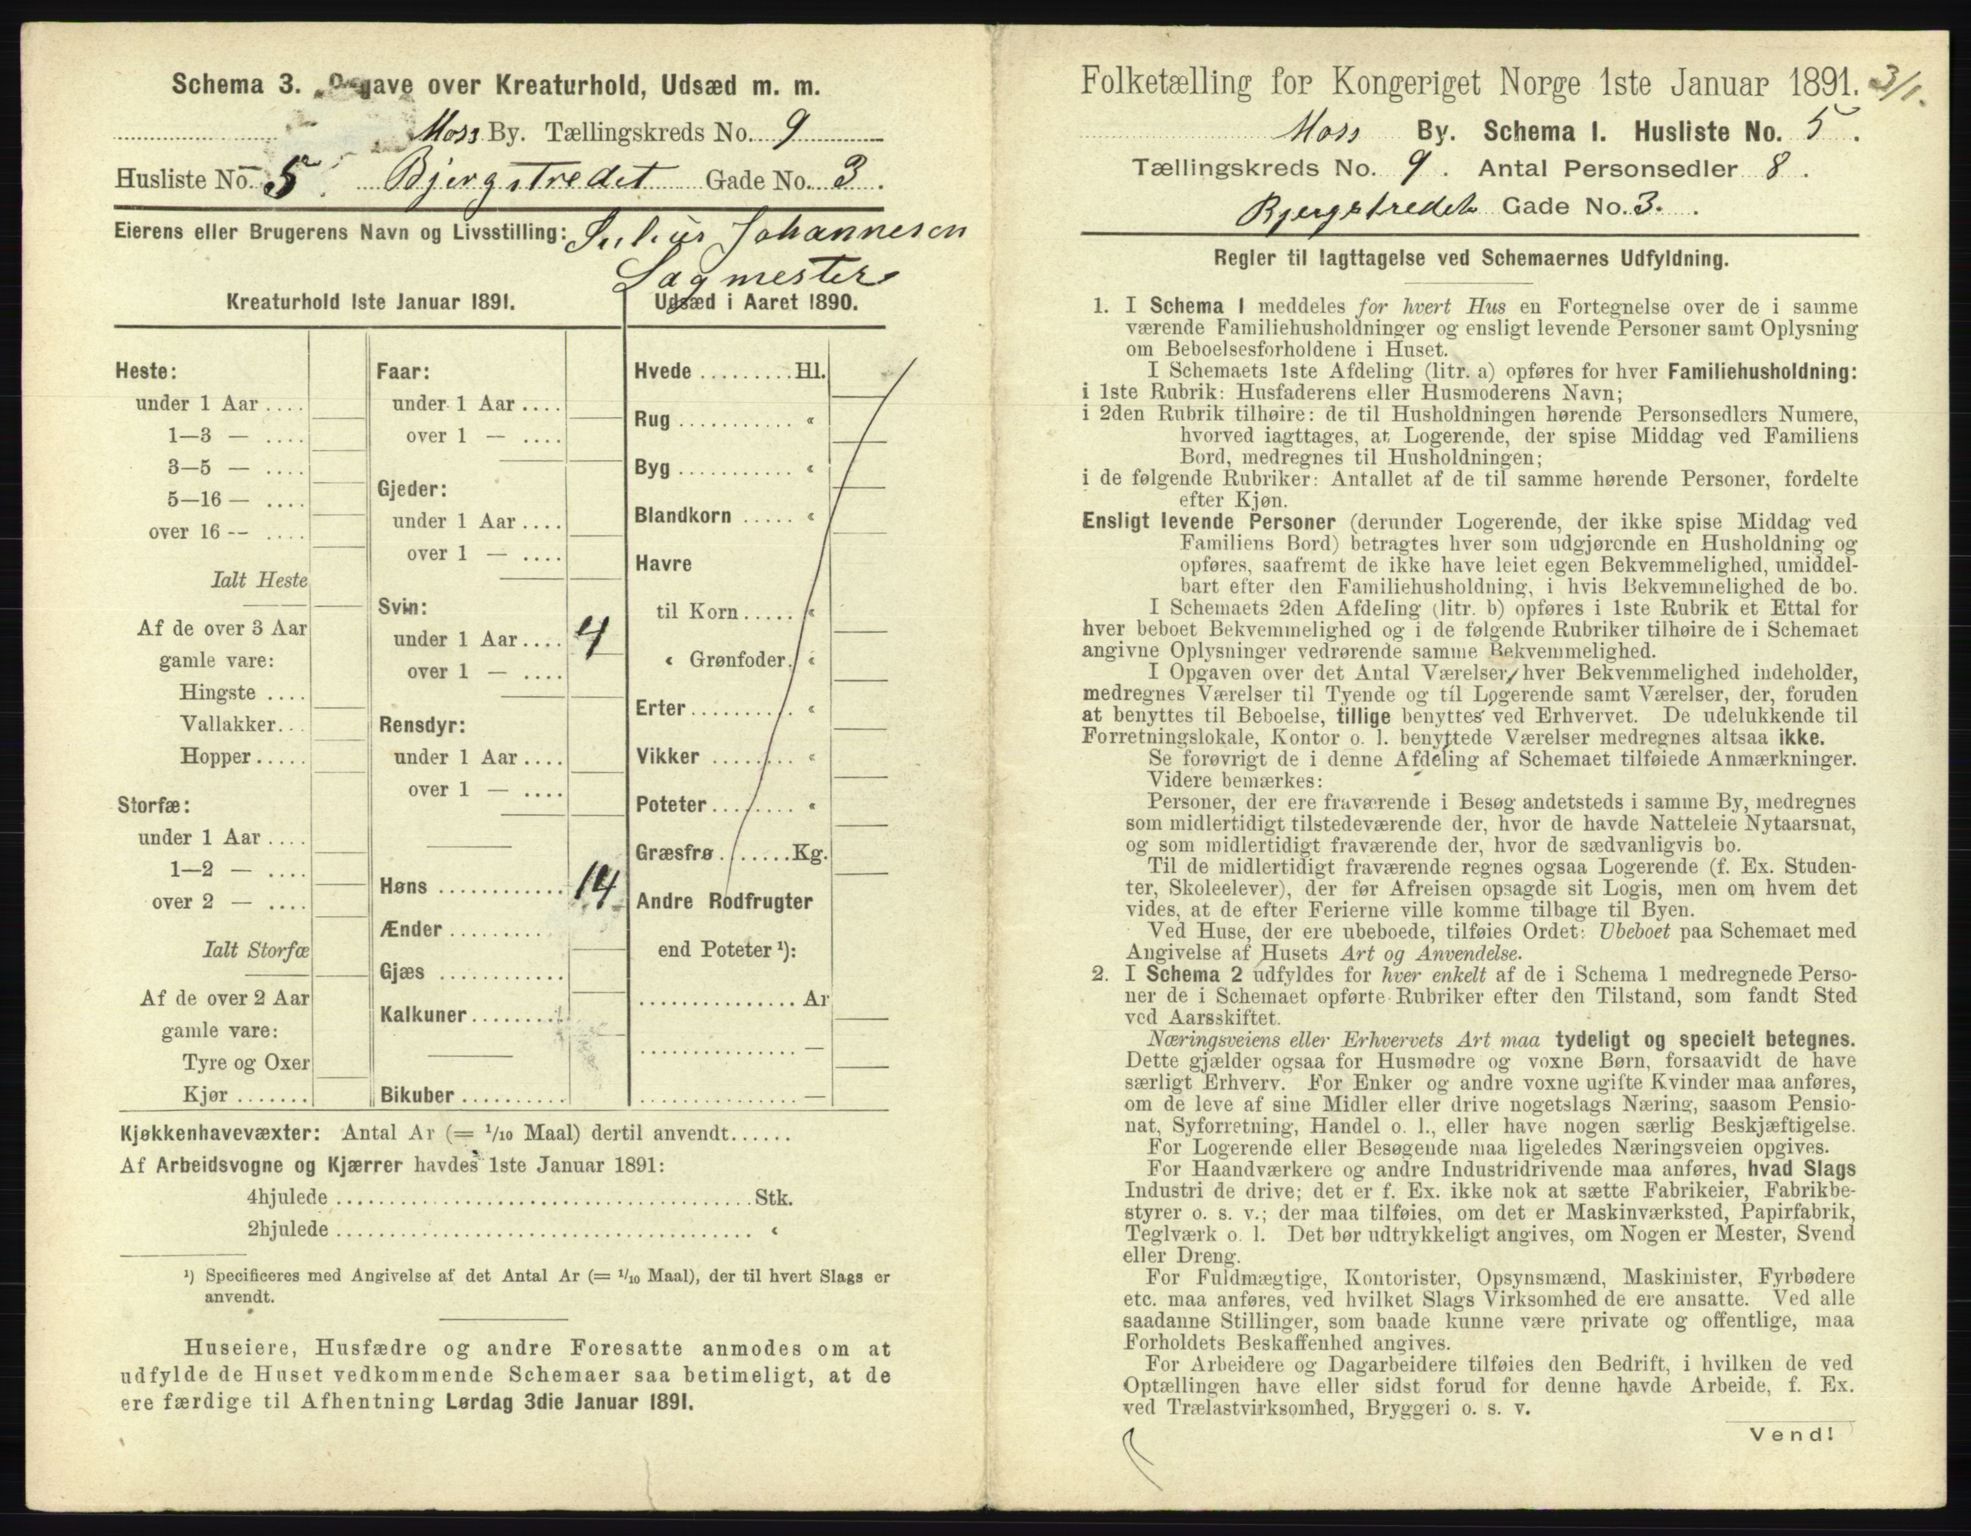 Schema 3. Opgave over Kreaturhold, Udsæd m. m.
Moss By. Tællingskreds No. 9
Husliste No. 5 Bjergstredet Gade No. 3.
Eierens eller Brugerens Navn og Livsstilling: Julius Johannesen
Sagmester
Kreaturhold 1ste Januar 1891.
Heste:
under 1 Aar ....
1—3 — ....
3—5 — ....
5—16 — ....
over 16 -- ....
Ialt Heste
Af de over 3 Aar
gamle vare:
Hingste ....
Vallakker...
Hopper.....
Storfæ:
under 1 Aar ....
1—2 — ....
over 2 — ....
Ialt Storfæ
Af de over 2 Aar
gamle vare:
Tyre og Oxer
Kjør .......
Faar:
under 1 Aar ....
over 1 — ....
Gjeder:
under 1 Aar ....
over 1 — ....
Svin:
under 1 Aar .... 4
over 1 — ....
Rensdyr:
under 1 Aar ....
over 1 — ....
Høns ............ 14
Ænder ..........
Gjæs ............
Kalkuner.........
Bikuber ..........
Udsæd i Aaret 1890.
Hvede .........Hl.
Rug ........... «
Byg ........... «
Blandkorn ..... «
Havre
til Korn ..... «
« Grønfoder. «
Erter.......... «
Vikker ........ «
Poteter........ «
Græsfrø .......Kg.
Andre Rodfrugter
end Poteter ¹):
...............Ar
............... —
............... —
Kjøkkenhavevæxter: Antal Ar (= 1/10 Maal) dertil anvendt......
Af Arbeidsvogne og Kjærrer havdes 1ste Januar 1891:
4hjulede ........................................Stk.
2hjulede ........................................ «
¹) Specificeres med Angivelse af det Antal Ar (= 1/10 Maal), der til hvert Slags er
anvendt.
Huseiere, Husfædre og andre Foresatte anmodes om at
udfylde de Huset vedkommende Schemaer saa betimeligt, at de
ere færdige til Afhentning Lørdag 3die Januar 1891.
Folketælling for Kongeriget Norge 1ste Januar 1891. 3/1.
Moss By. Schema I. Husliste No. 5.
Tællingskreds No. 9. Antal Personsedler 8.
Bjergstredet Gade No. 3.
Regler til Iagttagelse ved Schemaernes Udfyldning.
1. I Schema 1 meddeles for hvert Hus en Fortegnelse over de i samme
værende Familiehusholdninger og ensligt levende Personer samt Oplysning
om Beboelsesforholdene i Huset.
I Schemaets 1ste Afdeling (litr. a) opføres for hver Familiehusholdning:
i 1ste Rubrik: Husfaderens eller Husmoderens Navn;
i 2den Rubrik tilhøire: de til Husholdningen hørende Personsedlers Numere,
hvorved iagttages, at Logerende, der spise Middag ved Familiens
Bord, medregnes til Husholdningen;
i de følgende Rubriker: Antallet af de til samme hørende Personer, fordelte
efter Kjøn.
Ensligt levende Personer (derunder Logerende, der ikke spise Middag ved
Familiens Bord) betragtes hver som udgjørende en Husholdning og
opføres, saafremt de ikke have leiet egen Bekvemmelighed, umiddel-
bart efter den Familiehusholdning, i hvis Bekvemmelighed de bo.
I Schemaets 2den Afdeling (litr. b) opføres i 1ste Rubrik et Ettal for
hver beboet Bekvemmelighed og i de følgende Rubriker tilhøire de i Schemaet
angivne Oplysninger vedrørende samme Bekvemmelighed.
I Opgaven over det Antal Værelser, hver Bekvemmelighed indeholder,
medregnes Værelser til Tyende og til Logerende samt Værelser, der, foruden
at benyttes til Beboelse, tillige benyttes ved Erhvervet. De udelukkende til
Forretningslokale, Kontor o. l. benyttede Værelser medregnes altsaa ikke.
Se forøvrigt de i denne Afdeling af Schemaet tilføiede Anmærkninger.
Videre bemærkes:
Personer, der ere fraværende i Besøg andetsteds i samme By, medregnes
som midlertidigt tilstedeværende der, hvor de havde Natteleie Nytaarsnat,
og som midlertidigt fraværende der, hvor de sædvanligvis bo.
Til de midlertidigt fraværende regnes ogsaa Logerende (f. Ex. Studen-
ter, Skoleelever), der før Afreisen opsagde sit Logis, men om hvem det
vides, at de efter Ferierne ville komme tilbage til Byen.
Ved Huse, der ere ubeboede, tilføies Ordet: Ubeboet paa Schemaet med
Angivelse af Husets Art og Anvendelse.
2. I Schema 2 udfyldes for hver enkelt af de i Schema 1 medregnede Perso-
ner de i Schemaet opførte Rubriker efter den Tilstand, som fandt Sted
ved Aarsskiftet.
Næringsveiens eller Erhvervets Art maa tydeligt og specielt betegnes.
Dette gjælder ogsaa for Husmødre og voxne Børn, forsaavidt de have
særligt Erhverv. For Enker og andre voxne ugifte Kvinder maa anføres,
om de leve af sine Midler eller drive nogetslags Næring, saasom Pensio-
nat, Syforretning, Handel o. l., eller have nogen særlig Beskjæftigelse.
For Logerende eller Besøgende maa ligeledes Næringsveien opgives.
For Haandværkere og andre Industridrivende maa anføres, hvad Slags
Industri de drive; det er f. Ex. ikke nok at sætte Fabrikeier, Fabrikbe-
styrer o. s. v.; der maa tilføies, om det er Maskinværksted, Papirfabrik,
Teglværk o. l. Det bør udtrykkeligt angives, om Nogen er Mester, Svend
eller Dreng.
For Fuldmægtige, Kontorister, Opsynsmænd, Maskinister, Fyrbødere
etc. maa anføres, ved hvilket Slags Virksomhed de ere ansatte. Ved alle
saadanne Stillinger, som baade kunne være private og offentlige, maa
Forholdets Beskaffenhed angives.
For Arbeidere og Dagarbeidere tilføies den Bedrift, i hvilken de ved
Optællingen have eller sidst forud for denne havde Arbeide, f. Ex.
ved Trælastvirksomhed, Bryggeri o. s. v.
Vend!